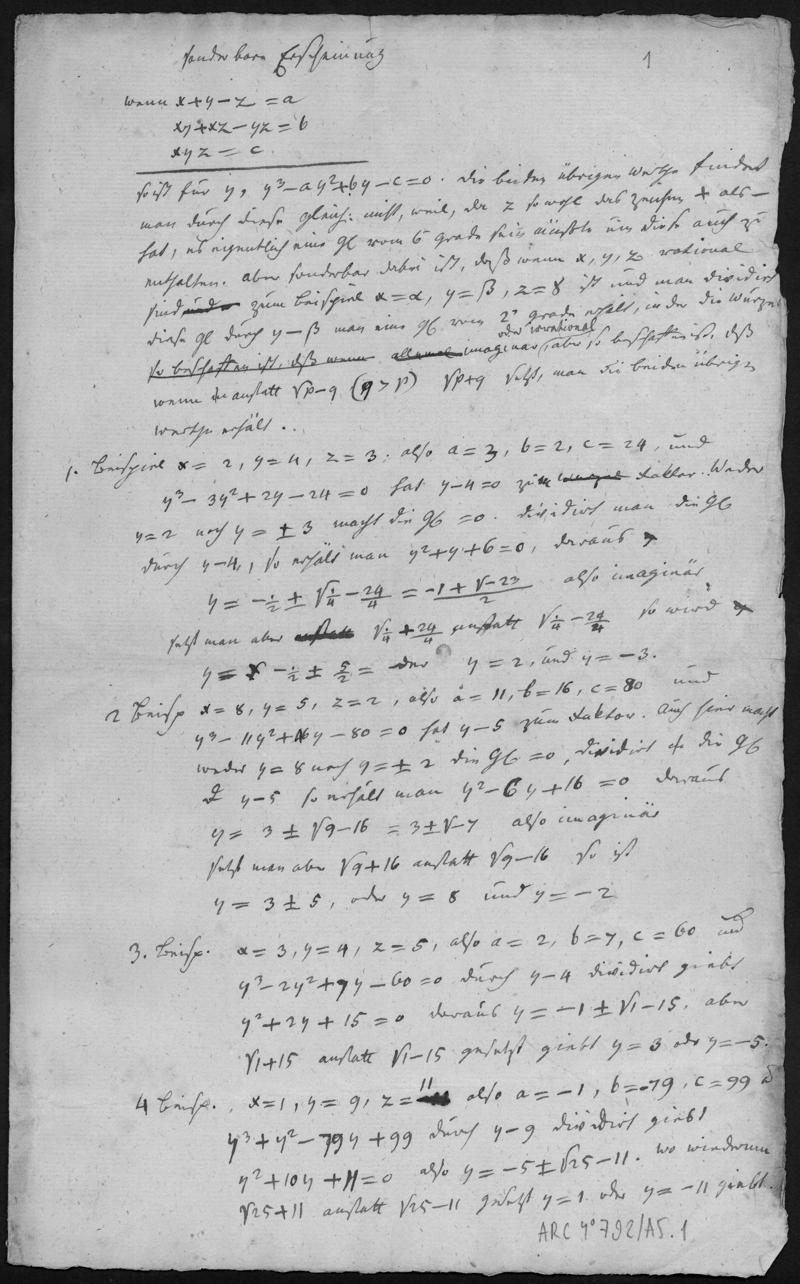 sonderbare Erscheinung
1
wenn x+y−z = a
xy+xz−yz = b
xyz = c
so ist für y, y³−ay²+by−c=0. die beiden übrigen Werthe findet
man durch diese gleich: nicht, weil, da z sowohl das Zeichen + als −
hat, es eigentlich eine Gl vom 6 grade sein müßte um diese auch zu
enthalten. aber sonderbar dabei ist, daß wenn x, y, z rational
sind und zum beispiel x=α, y=β, z=8 ist und man dividirt
diese gl durch y−β man eine Gl vom 2ⁿ grade erhält, in der die Wurzel
oder irrational
so beschaffen ist, daß wenn allemal imaginär, aber so beschaffen ist, daß
wenn anstatt √p−q (q>p) √p+q setzt, man die beiden übrigen
werthe erhält..
1. Beispiel x=2, y=4, z=3; also a=3, b=2, c=24, und
y³−3y²+2y−24=0 hat y−4=0 zum Faktor. Weder
y=2 noch y=±3 macht die Gl =0. dividirt man die Gl
durch y−4, so erhält man y²+y+6=0, daraus
y = −½ ± √¼−24/4 = −1+√−23/2 also imaginär
setzt man aber anstatt √¼+24/4 anstatt √¼−24/4 so wird
y = −½ ± 5/2 = oder y=2, und y=−3.
2 Beisp x=8, y=5, z=2, also a=11, b=16, c=80 und
y³−11y²+16y−80=0 hat y−5 zum Faktor. Auch hier macht
weder y=8 noch y=±2 die Gl =0, dividirt die Gl
y−5 so erhält man y²−6y+16=0 daraus
y = 3±√9−16 = 3±√−7 also imaginär
setzt man aber √9+16 anstatt √9−16 so ist
y = 3±5, oder y=8 und y=−2
3. Beisp. x=3, y=4, z=5, also a=2, b=7, c=60 und
y³−2y²+7y−60=0 durch y−4 dividirt giebt
y²+2y+15=0 daraus y=−1±√1−15, aber
√1+15 anstatt √1−15 gesetzt giebt y=3 oder y=−5.
4 Beisp. x=1, y=9, z=11 also a=−1, b=−79, c=99
y³+y²−79y+99 durch y−9 dividirt giebt
y²+10y+11=0 also y=−5±√25−11. wo wiederum
√25+11 anstatt √25−11 gesetzt y=1 oder y=−11 giebt.
ARC 4° 792/A5.1